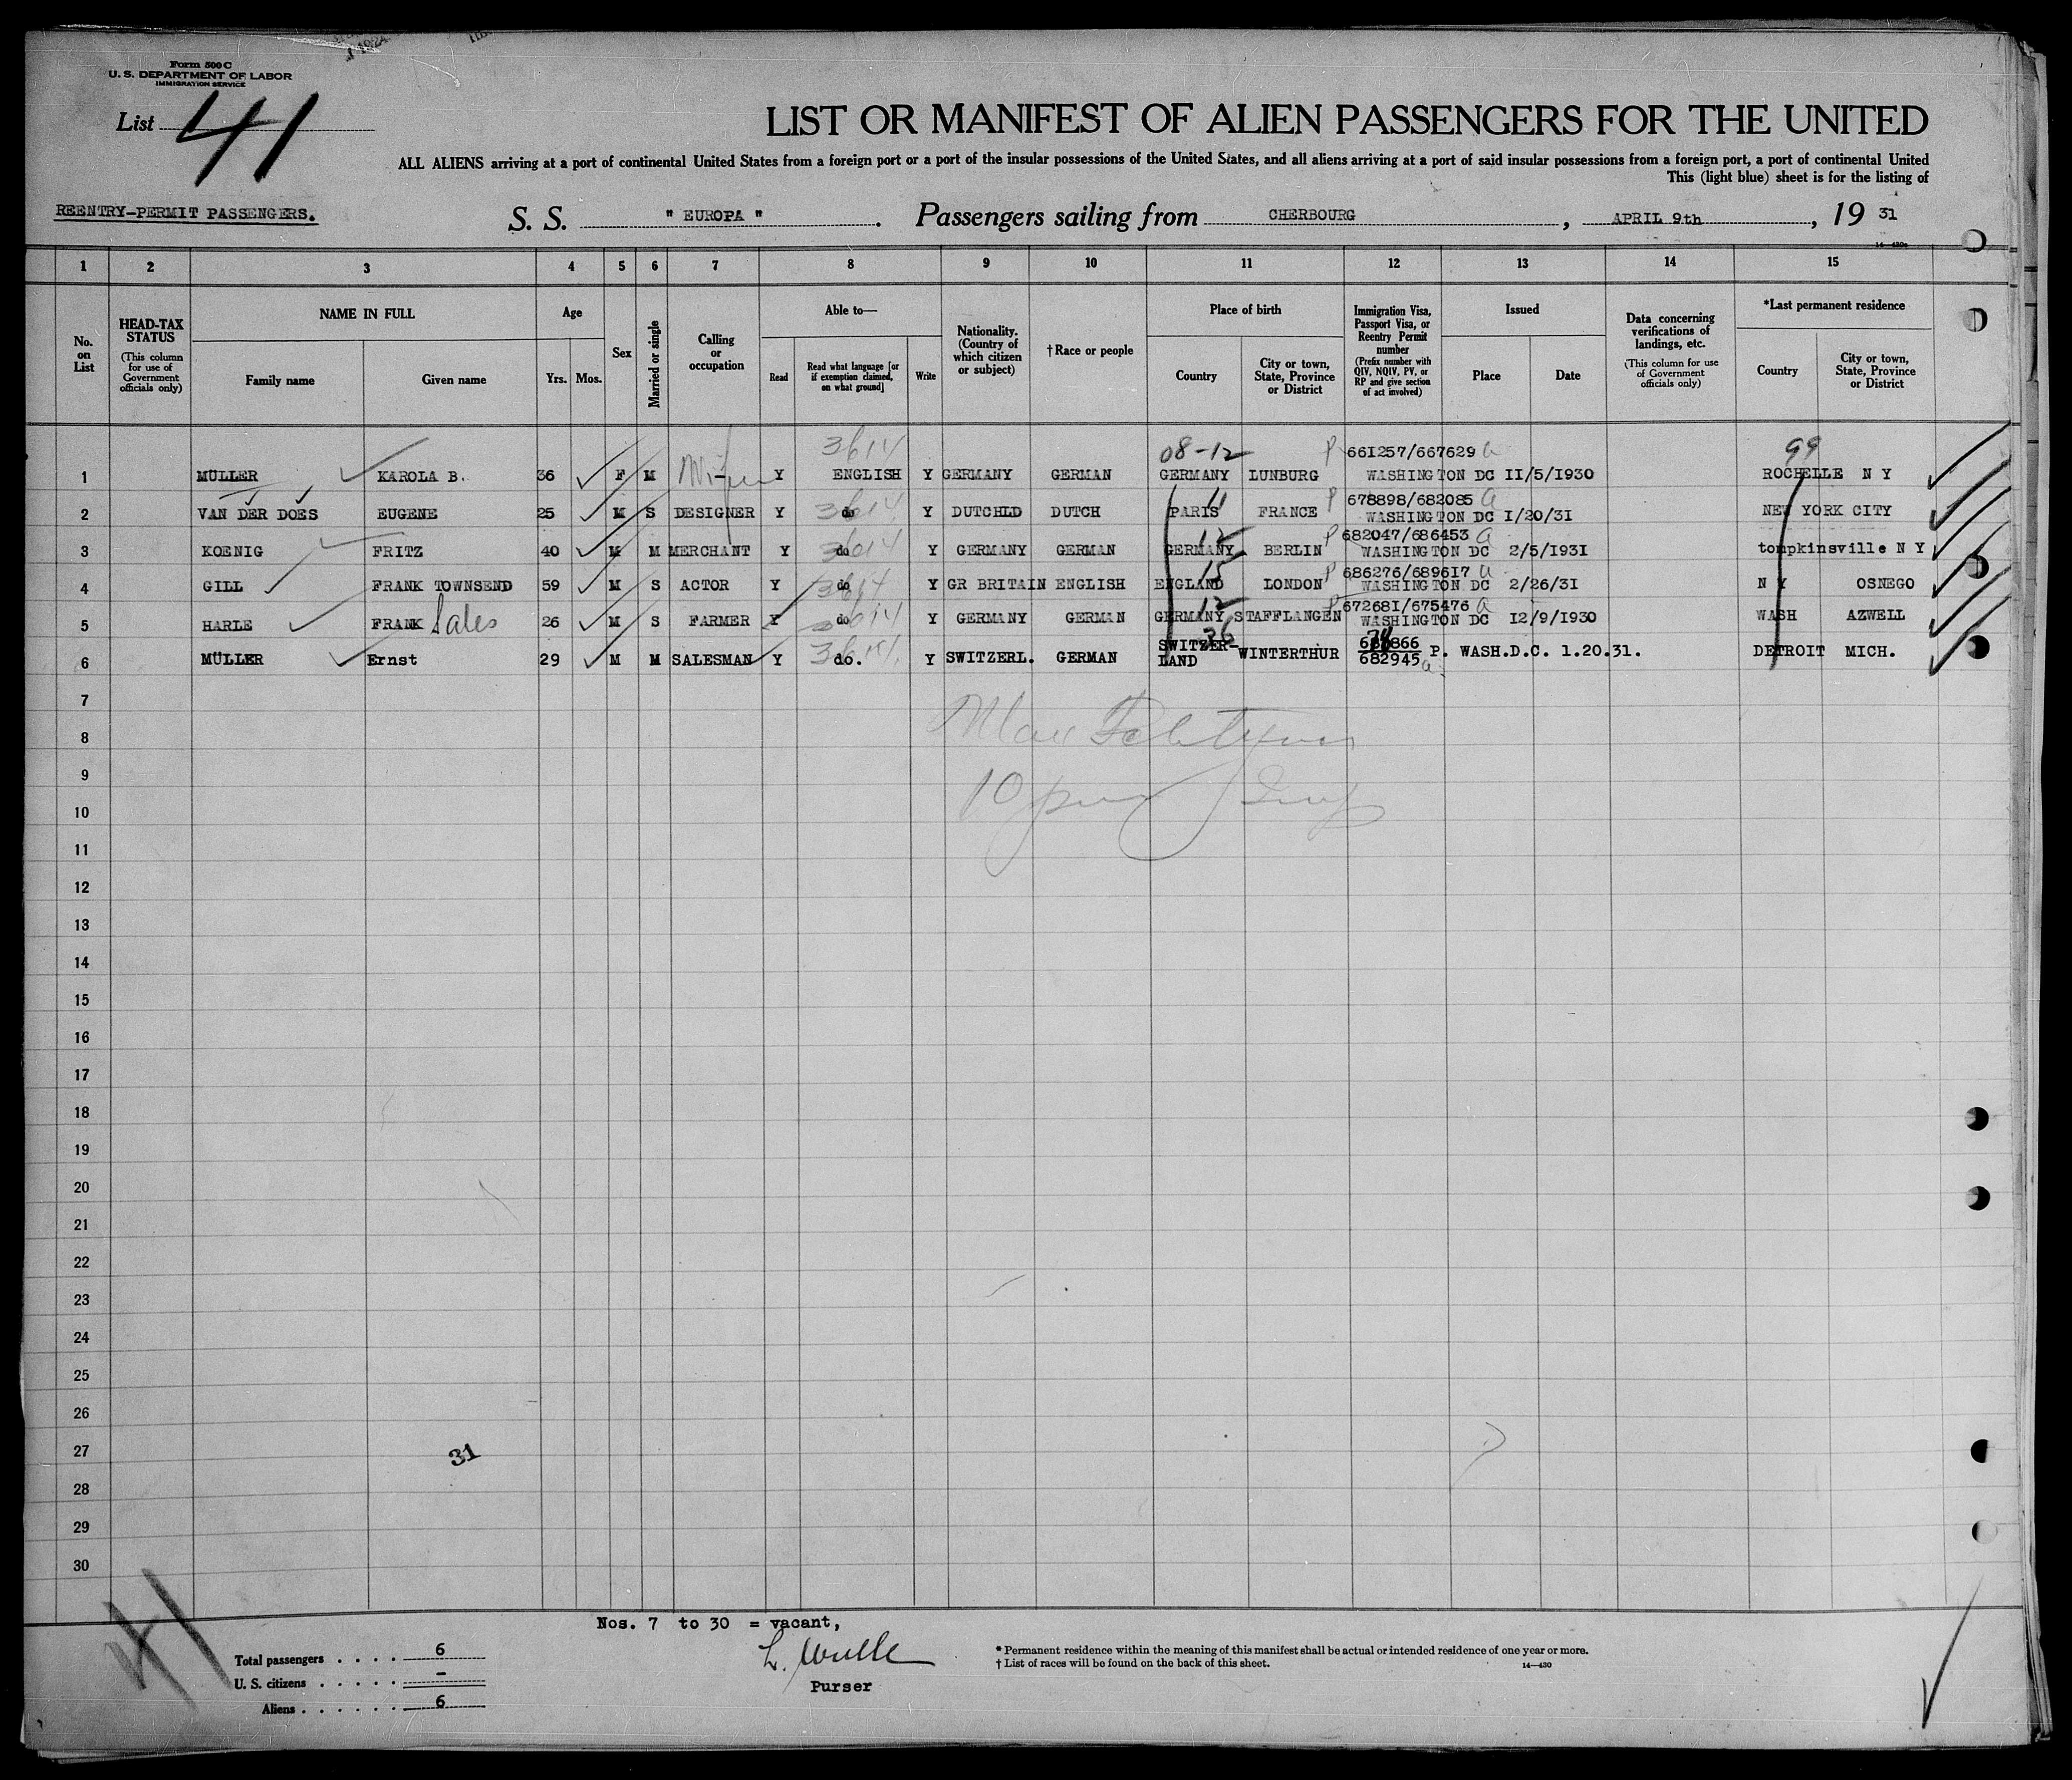 Form 500 C
U. S. DEPARTMENT OF LABOR
IMMIGRATION SERVICE
List 41
LIST OR MANIFEST OF ALIEN PASSENGERS FOR THE UNITED
ALL ALIENS arriving at a port of continental United States from a foreign port or a port of the insular possessions of the United States, and all aliens arriving at a port of said insular possessions from a foreign port, a port of continental United
This (light blue) sheet is for the listing of
REENTRY-PERMIT PASSENGERS.
S. S. " EUROPA ". Passengers sailing from CHERBOURG, APRIL 9th, 19 31
1 2 3 4 5 6 7 8 9 10 11 12 13 14 15
No. on List
HEAD-TAX STATUS (This column for use of Government officials only)
NAME IN FULL
Family name
Given name
Age
Yrs. Mos.
Sex
Married or single
Calling or occupation
Able to—
Read
Read what language [or if exemption claimed, on what ground]
Write
Nationality. (Country of which citizen or subject)
†Race or people
Place of birth
Country
City or town, State, Province or District
Immigration Visa, Passport Visa, or Reentry Permit number (Prefix number with QIV, NQIV, PV, or RP and give section of act involved)
Issued
Place
Date
Data concerning verifications of landings, etc. (This column for use of Government officials only)
*Last permanent residence
Country
City or town, State, Province or District
3614 08-12 P 661257/667629 a 99
1 MÜLLER KAROLA B. 36 F M Wife Y ENGLISH Y GERMANY GERMAN GERMANY LUNBURG WASHINGTON DC II/5/1930 ROCHELLE N Y
3614 11 P 678898/682085 a
2 VAN DER DOES EUGENE 25 M S DESIGNER Y do Y DUTCHLD DUTCH PARIS FRANCE WASHINGTON DC I/20/31 NEW YORK CITY
3614 12 P 682047/686453 a
3 KOENIG FRITZ 40 M M MERCHANT Y do Y GERMANY GERMAN GERMANY BERLIN WASHINGTON DC 2/5/1931 tompkinsville N Y
3614 15 P 686276/689617 a
4 GILL FRANK TOWNSEND 59 M S ACTOR Y do Y GR BRITAIN ENGLISH ENGLAND LONDON WASHINGTON DC 2/26/31 N Y OSNEGO
3614 12 P 672681/675476 a
5 HARLE FRANK Sales 26 M S FARMER Y do Y GERMANY GERMAN GERMANY STAFFLANGEN WASHINGTON DC I2/9/1930 WASH AZWELL
3614 36
6 MÜLLER Ernst 29 M M SALESMAN Y do. Y SWITZERL. GERMAN SWITZER-LAND WINTERTHUR 682945 a P. WASH.D.C. 1.20.31. DETROIT MICH.
7
8
9
10
11
12
13
14
15
16
17
18
19
20
21
22
23
24
25
26
27
31
28
29
30
41
Nos. 7 to 30 = vacant,
Total passengers 6
U. S. citizens –
Aliens 6
Purser
* Permanent residence within the meaning of this manifest shall be actual or intended residence of one year or more.
† List of races will be found on the back of this sheet.
14—430